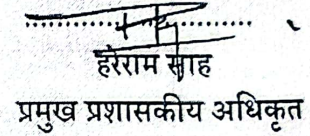 हरेराम साह
प्रमुख प्रशासकीय अधिकृत